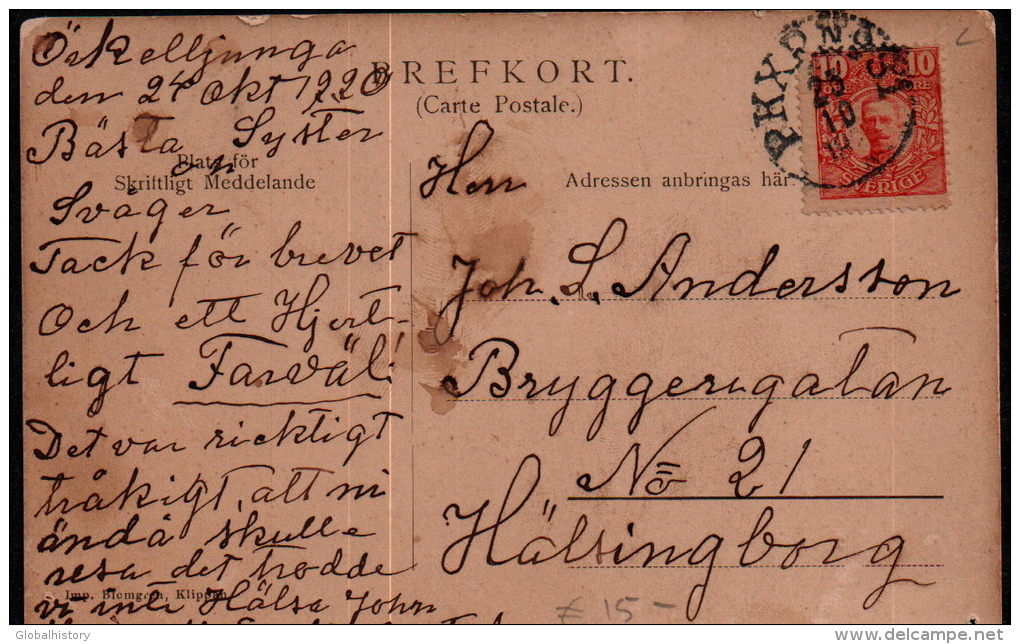 Örkelljunga
den 24 Okt 1920
Bästa Syster
och
Svåger
Tack för brevet
Och ett Hjert-
ligt Farväl!
Det var ricktigt
tråkigt, att ni
ändå skulle
resa det trodde
vi inte Hälsa John
BREFKORT.
(Carte Postale.)
Plats för
Skriftligt Meddelande
Adressen anbringas här.
Herr
Joh. L. Andersson
Bryggerigatan
No 21
Hälsingborg
PKXP No
10 10
ÖRE ÖRE
SVERIGE
Imp. Blomgren, Klippan
£ 15-
Globalhistory
delcampe.net